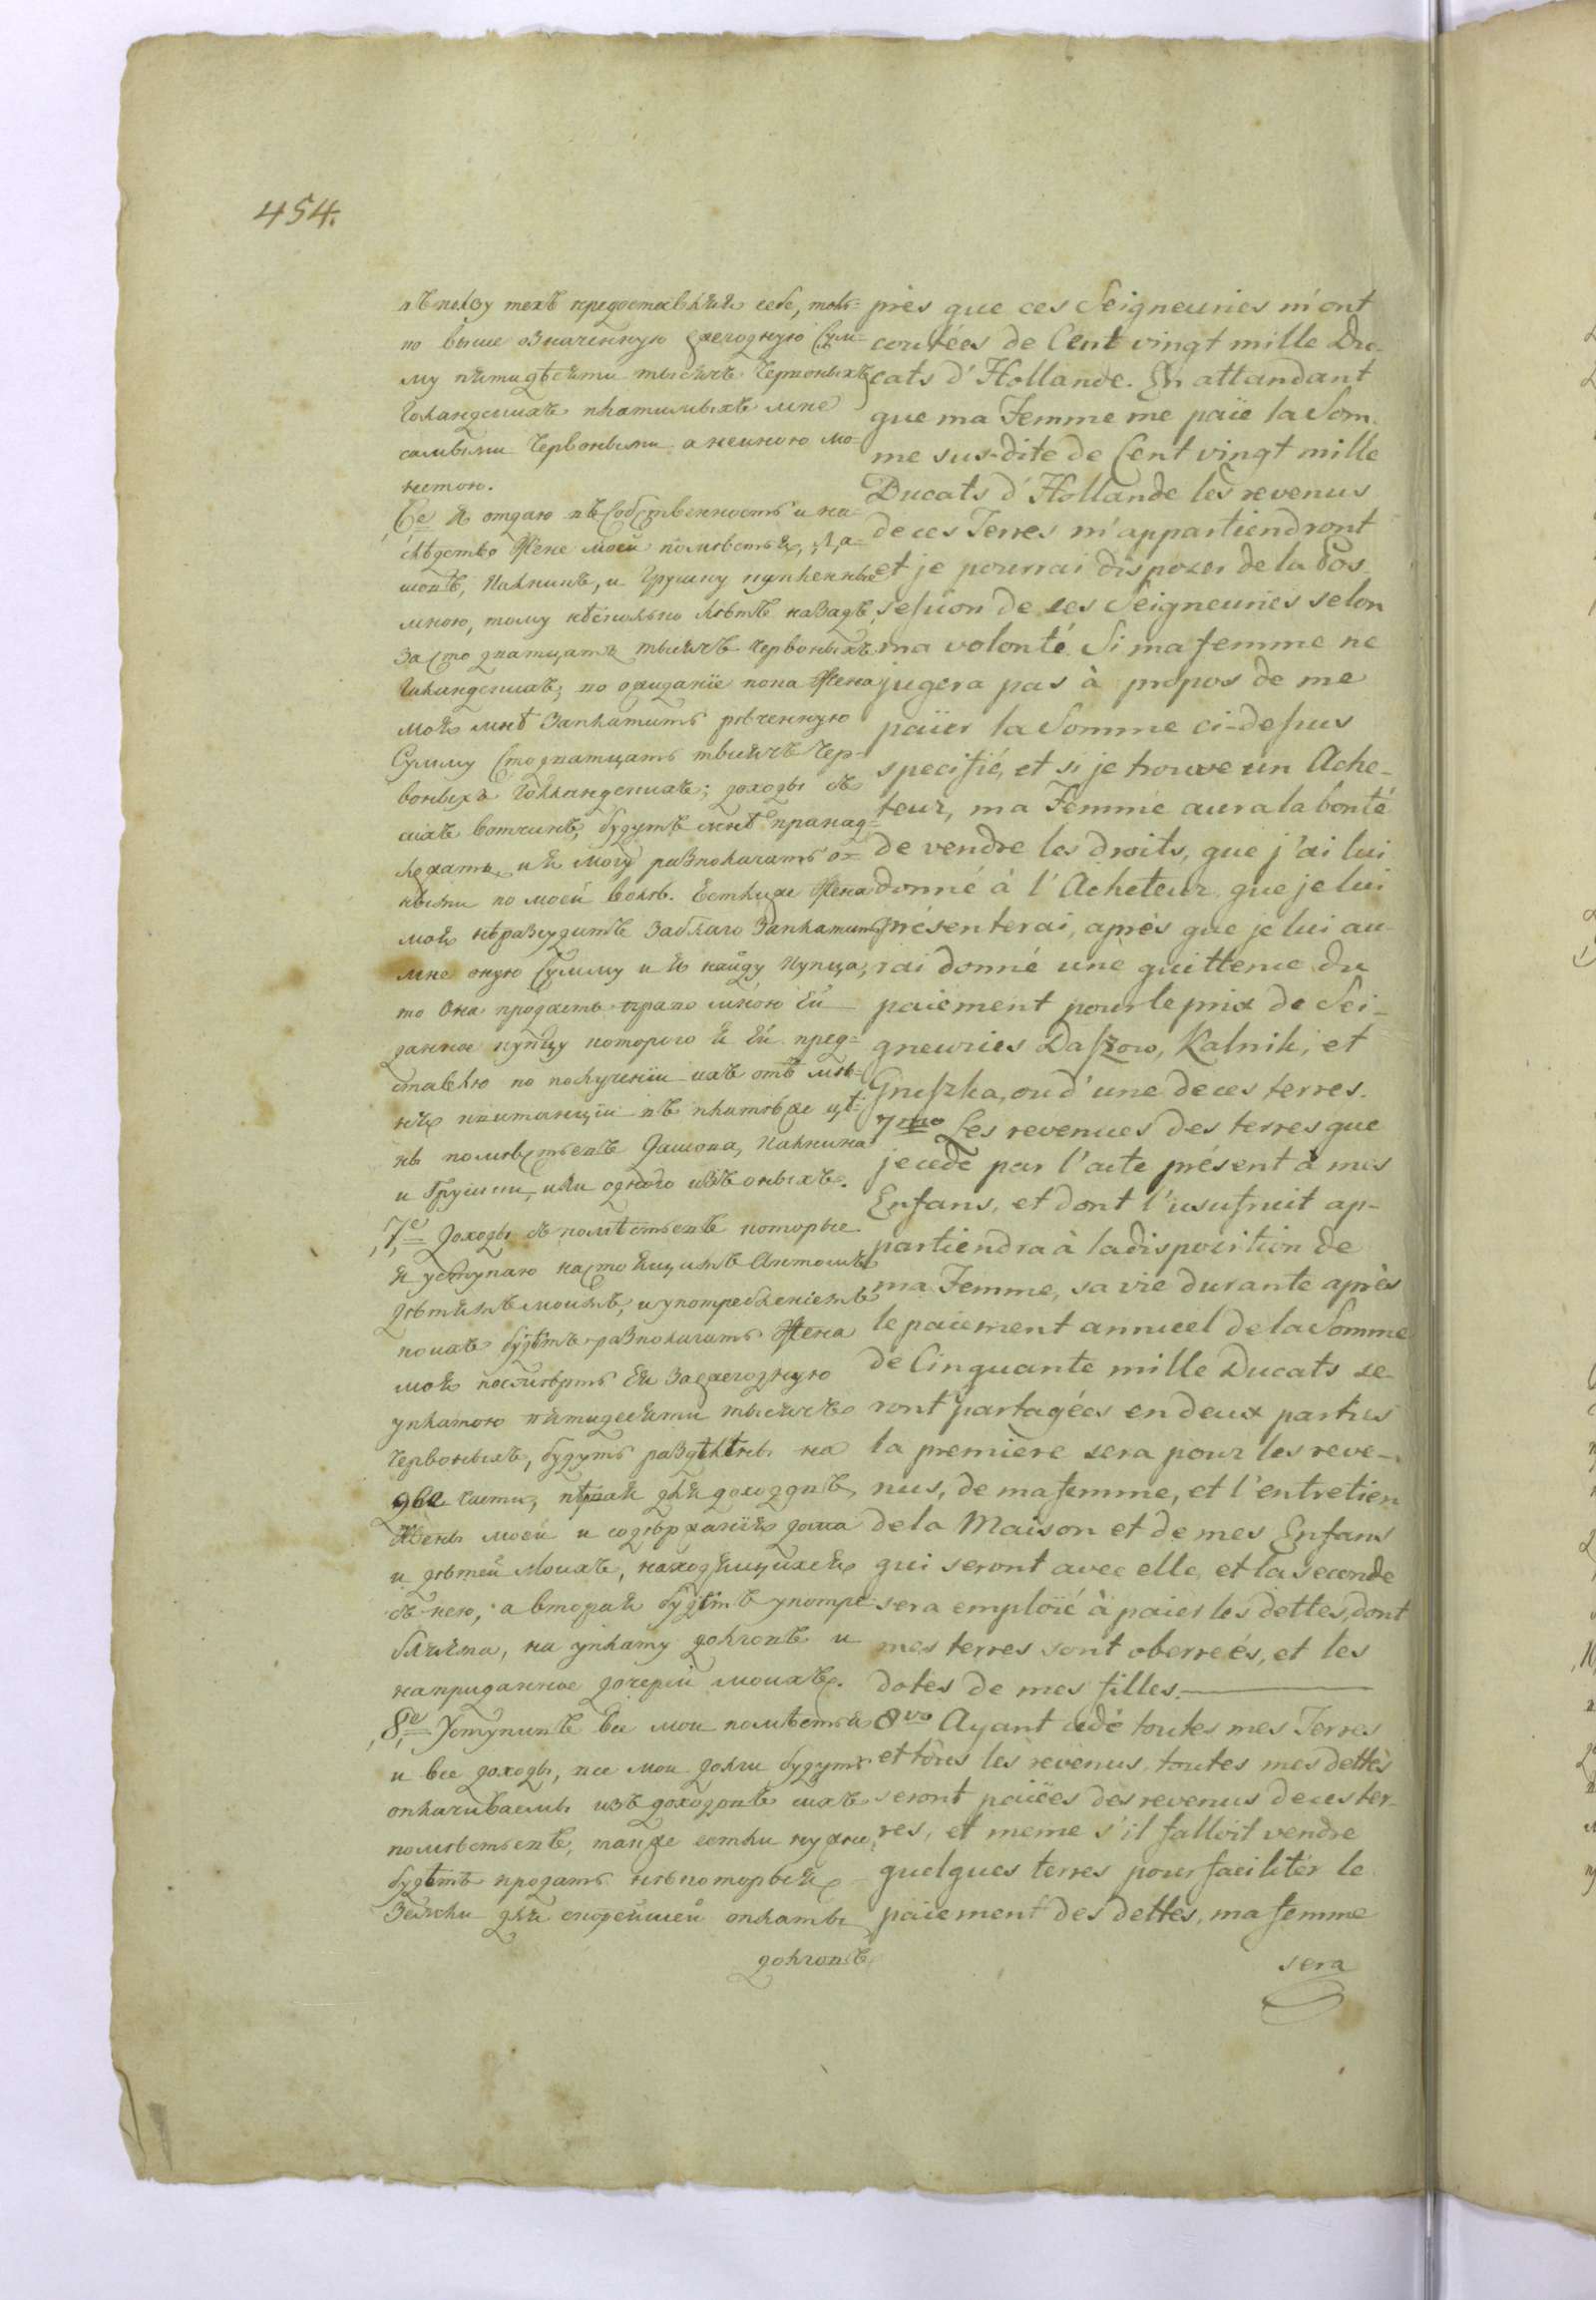 454.
въ пользу техъ предоставляя себе, толь=
ко выше означенную ежегодную Сум=
му пятидесяти тысячъ Червоныхъ
Голандскихъ платимыхъ мне
самыми Червоными а не иною мо=
нетою.
6е Я отдаю въ Собственность и на=
следство Жене моей поместья, Да=
шовъ, Кальникъ, и Грушку купленные
мною, тому несколько летъ назадъ,
за сто дватцать тысячъ червоныхъ
Голандскихъ; но ожидание пока Жена
моя мне Заплатитъ реченную
Сумму Сто дватцать тысячъ Чер=
воныхъ Голландскихъ; доходы съ
сихъ вотчинъ, будутъ мне принад=
лежать, и я могу располагать о=
ными по моей воле. Естьли же Жена
моя не разсудитъ заблаго Заплатить
мне оную Сумму и я найду купца,
то Она продастъ право мною Ей
данное купцу которого я Ей пред=
ставлю по получении ихъ отъ ме=
ня квитанции въ платеже це=
ны поместьевъ Дашова, Кальника
и Грушки, или одного изъ оныхъ.
7е Доходы съ поместьевъ которые
я уступаю настоящимъ Актомъ
детямъ моимъ, и употреблениемъ
коихъ будетъ располагать Жена
моя по смерть Ея За ежегодную
уплатою пятидесяти тысячъ
Червоныхъ, будутъ разделены на
две части, первая для доходовъ
Жены моей и содержания дома
и детей Моихъ, находящихся
съ нею, а вторая будетъ употре=
бляема, на уплату долговъ и
на приданное дочерей моихъ.
8е Уступивъ все мои поместья
и все доходы, все мои долги будутъ
оплачиваемы изъ доходовъ сихъ
поместьевъ, также естьли нужно
будетъ продать некоторыя
Земли для скорейшей оплаты
долговъ
près que ces Seigneuries m'ont
coutées de Cent vingt mille Du-
cats d'Hollande. En attandant
que ma Femme me païe la Som-
me sus-dite de Cent vingt mille
Ducats d'Hollande les revenus
de ces Terres m'appartiendront
et je pourrai disposer de la pos-
session de ses Seigneuries selon
ma volonté. Si ma femme ne
jugera pas à propos de me
païer la Somme ci-dessus
specifié, et si je trouve un Ache-
teur, ma Femme aura la bonté
de vendre les droits, que j'ai lui
donné à l'Acheteur que je lui
présenterai, après que je lui au-
rai donné une quittence du
paiement pour le prix de Sei-
gneuries Daszow, Kalnik, et
Gruszka, ou d'une de ces terres.
7mo Les revenues des terres que
je cede par l'acte présent à mes
Enfans, et dont l'usufruit ap-
partiendra à la disposition de
ma Femme, sa vie durante après
le paiement annuel de la Somme
de Cinquante mille Ducats se-
ront partagées en deux parties
la première sera pour les reve-
nus, de ma femme, et l'entretien
de la Maison et de mes Enfans
qui seront avec elle, et la seconde
sera emploïé à paier les dettes, dont
mes terres sont oberreés, et les
dotes de mes filles.
8vo Ayant cedé toutes mes Terres
et tous les revenus, toutes mes dettes
seront païees des revenus de ces ter-
res, et meme s'il falloit vendre
quelques terres pour faciliter le
paiement des dettes, ma femme
sera